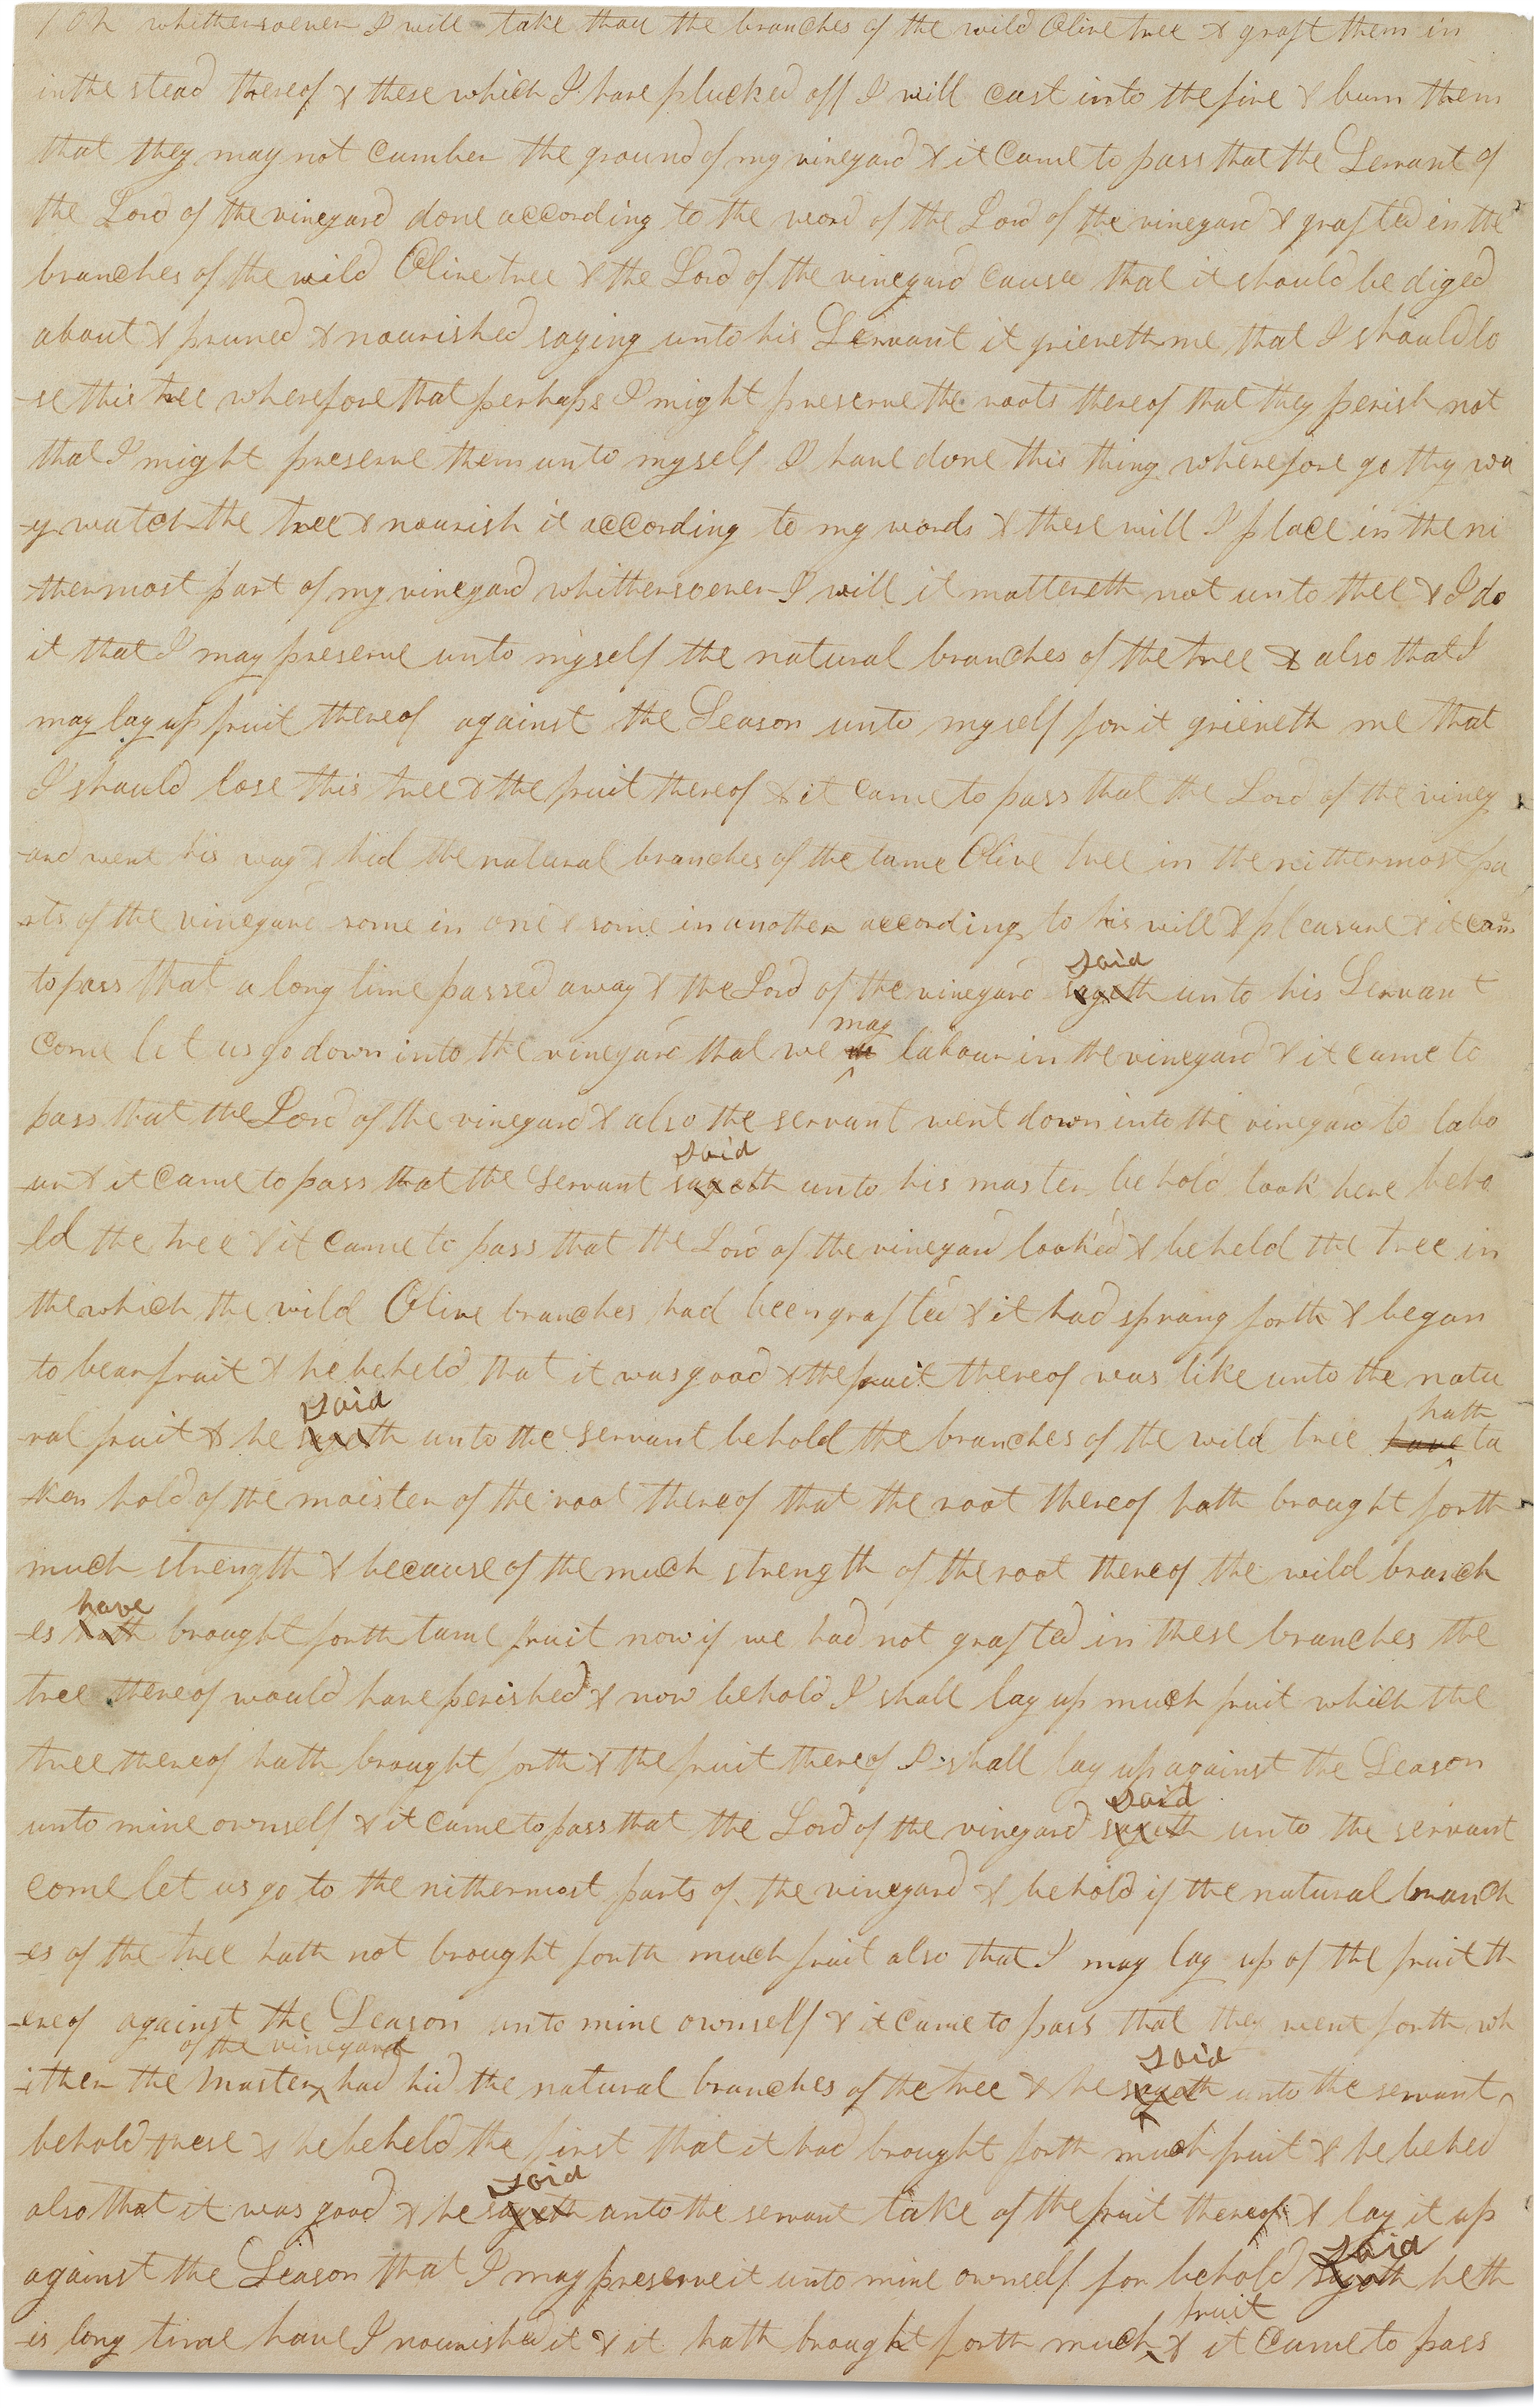 104 whithersoever I will take thou the branches of the wild Olive tree & graft them in
in the stead thereof & these which I have plucked off I will cast into the fire & burn them
that they may not cumber the ground of my vineyard & it came to pass that the Servant of
the Lord of the vineyard done according to the word of the Lord of the vineyard & grafted in the
branches of the wild Olive tree & the Lord of the vineyard caused that it should be diged
about & pruned & nourished saying unto his Servant it grieveth me that I should lo
-se this tree wherefore that perhaps I might preserve the roots thereof that they perish not
that I might preserve them unto myself I have done this thing wherefore go thy wa
-y watch the tree & nourish it according to my words & these will I place in the ni
-thermost part of my vineyard whithersoever I will it mattereth not unto thee & I do
it that I may preserve unto myself the natural branches of the tree & also that I
may lay up fruit thereof against the Season unto myself for it grieveth me that
I should lose this tree & the fruit thereof & it came to pass that the Lord of the viney
-ard went his way & hid the natural branches of the tame Olive tree in the nithermost pa
-rts of the vineyard some in one & some in another according to his will & pleasure & it came
said
to pass that a long time passed away & the Lord of the vineyard sayeth unto his Servant
may
come let us go down into the vineyard that we labour in the vineyard & it came to
pass that the Lord of the vineyard & also the servant went down into the vineyard to labo
said
-ur & it came to pass that the Servant sayeth unto his master behold look here beho
-ld the tree & it came to pass that the Lord of the vineyard looked & beheld the tree in
the which the wild Olive branches had been grafted & it had sprang forth & began
to bear fruit & he beheld that it was good & the fruit thereof was like unto the natu
said hath
-ral fruit & he sayeth unto the Servant behold the branches of the wild tree have ta
-ken hold of the moister of the root thereof that the root thereof hath brought forth
much strength & because of the much strength of the root thereof the wild branch
have
-es hath brought forth tame fruit now if we had not grafted in these branches the
tree thereof would have perished & now behold I shall lay up much fruit which the
tree thereof hath brought forth & the fruit thereof I shall lay up against the Season
said
unto mine ownself & it came to pass that the Lord of the vineyard sayeth unto the servant
come let us go to the nithermost parts of the vineyard & behold if the natural branch
-es of the tree hath not brought forth much fruit also that I may lay up of the fruit th
-ereof against the Season unto mine ownself & it came to pass that they went forth wh
of the vineyard said
-ither the Master had hid the natural branches of the tree & he sayeth unto the servant
behold these & he beheld the first that it had brought forth much fruit & he beheld
said
also that it was good & he sayeth unto the servant take of the fruit thereof & lay it up
said
against the Season that I may preserve it unto mine ownself for behold sayeth he th
fruit
-is long time have I nourished it & it hath brought forth much & it came to pass